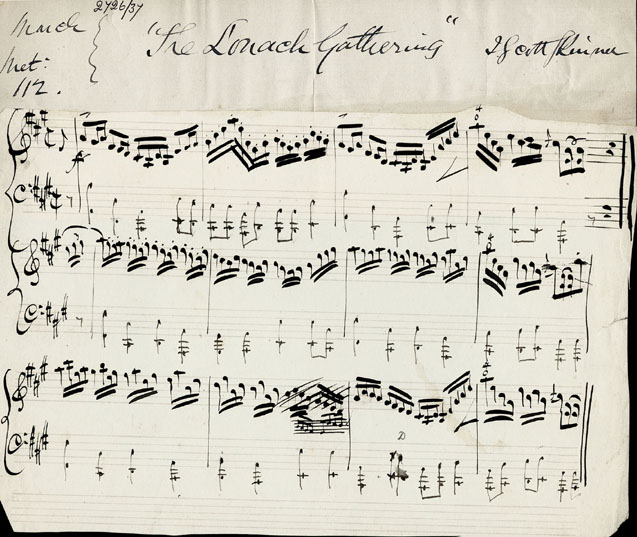 2726/37
March "The Lonach Gathering" J Scott Skinner
Met:
112.
D